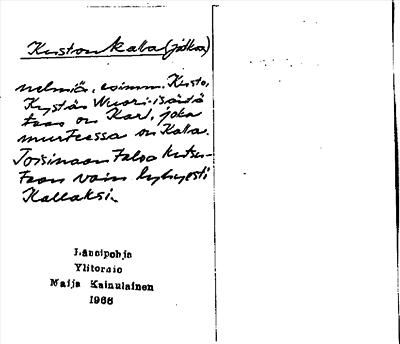 Kustonkalla (jatkoa)
nelmiä, esimm. Kusto,
Kystän Wuori-isäntä
taas on Karl, joka
murteessa on Kalla.
Toisinaan taloa kutsu-
taan vain lyhyesti
Kallaksi.
Länsipohja
Ylitornio
Maija Kainulainen
1966